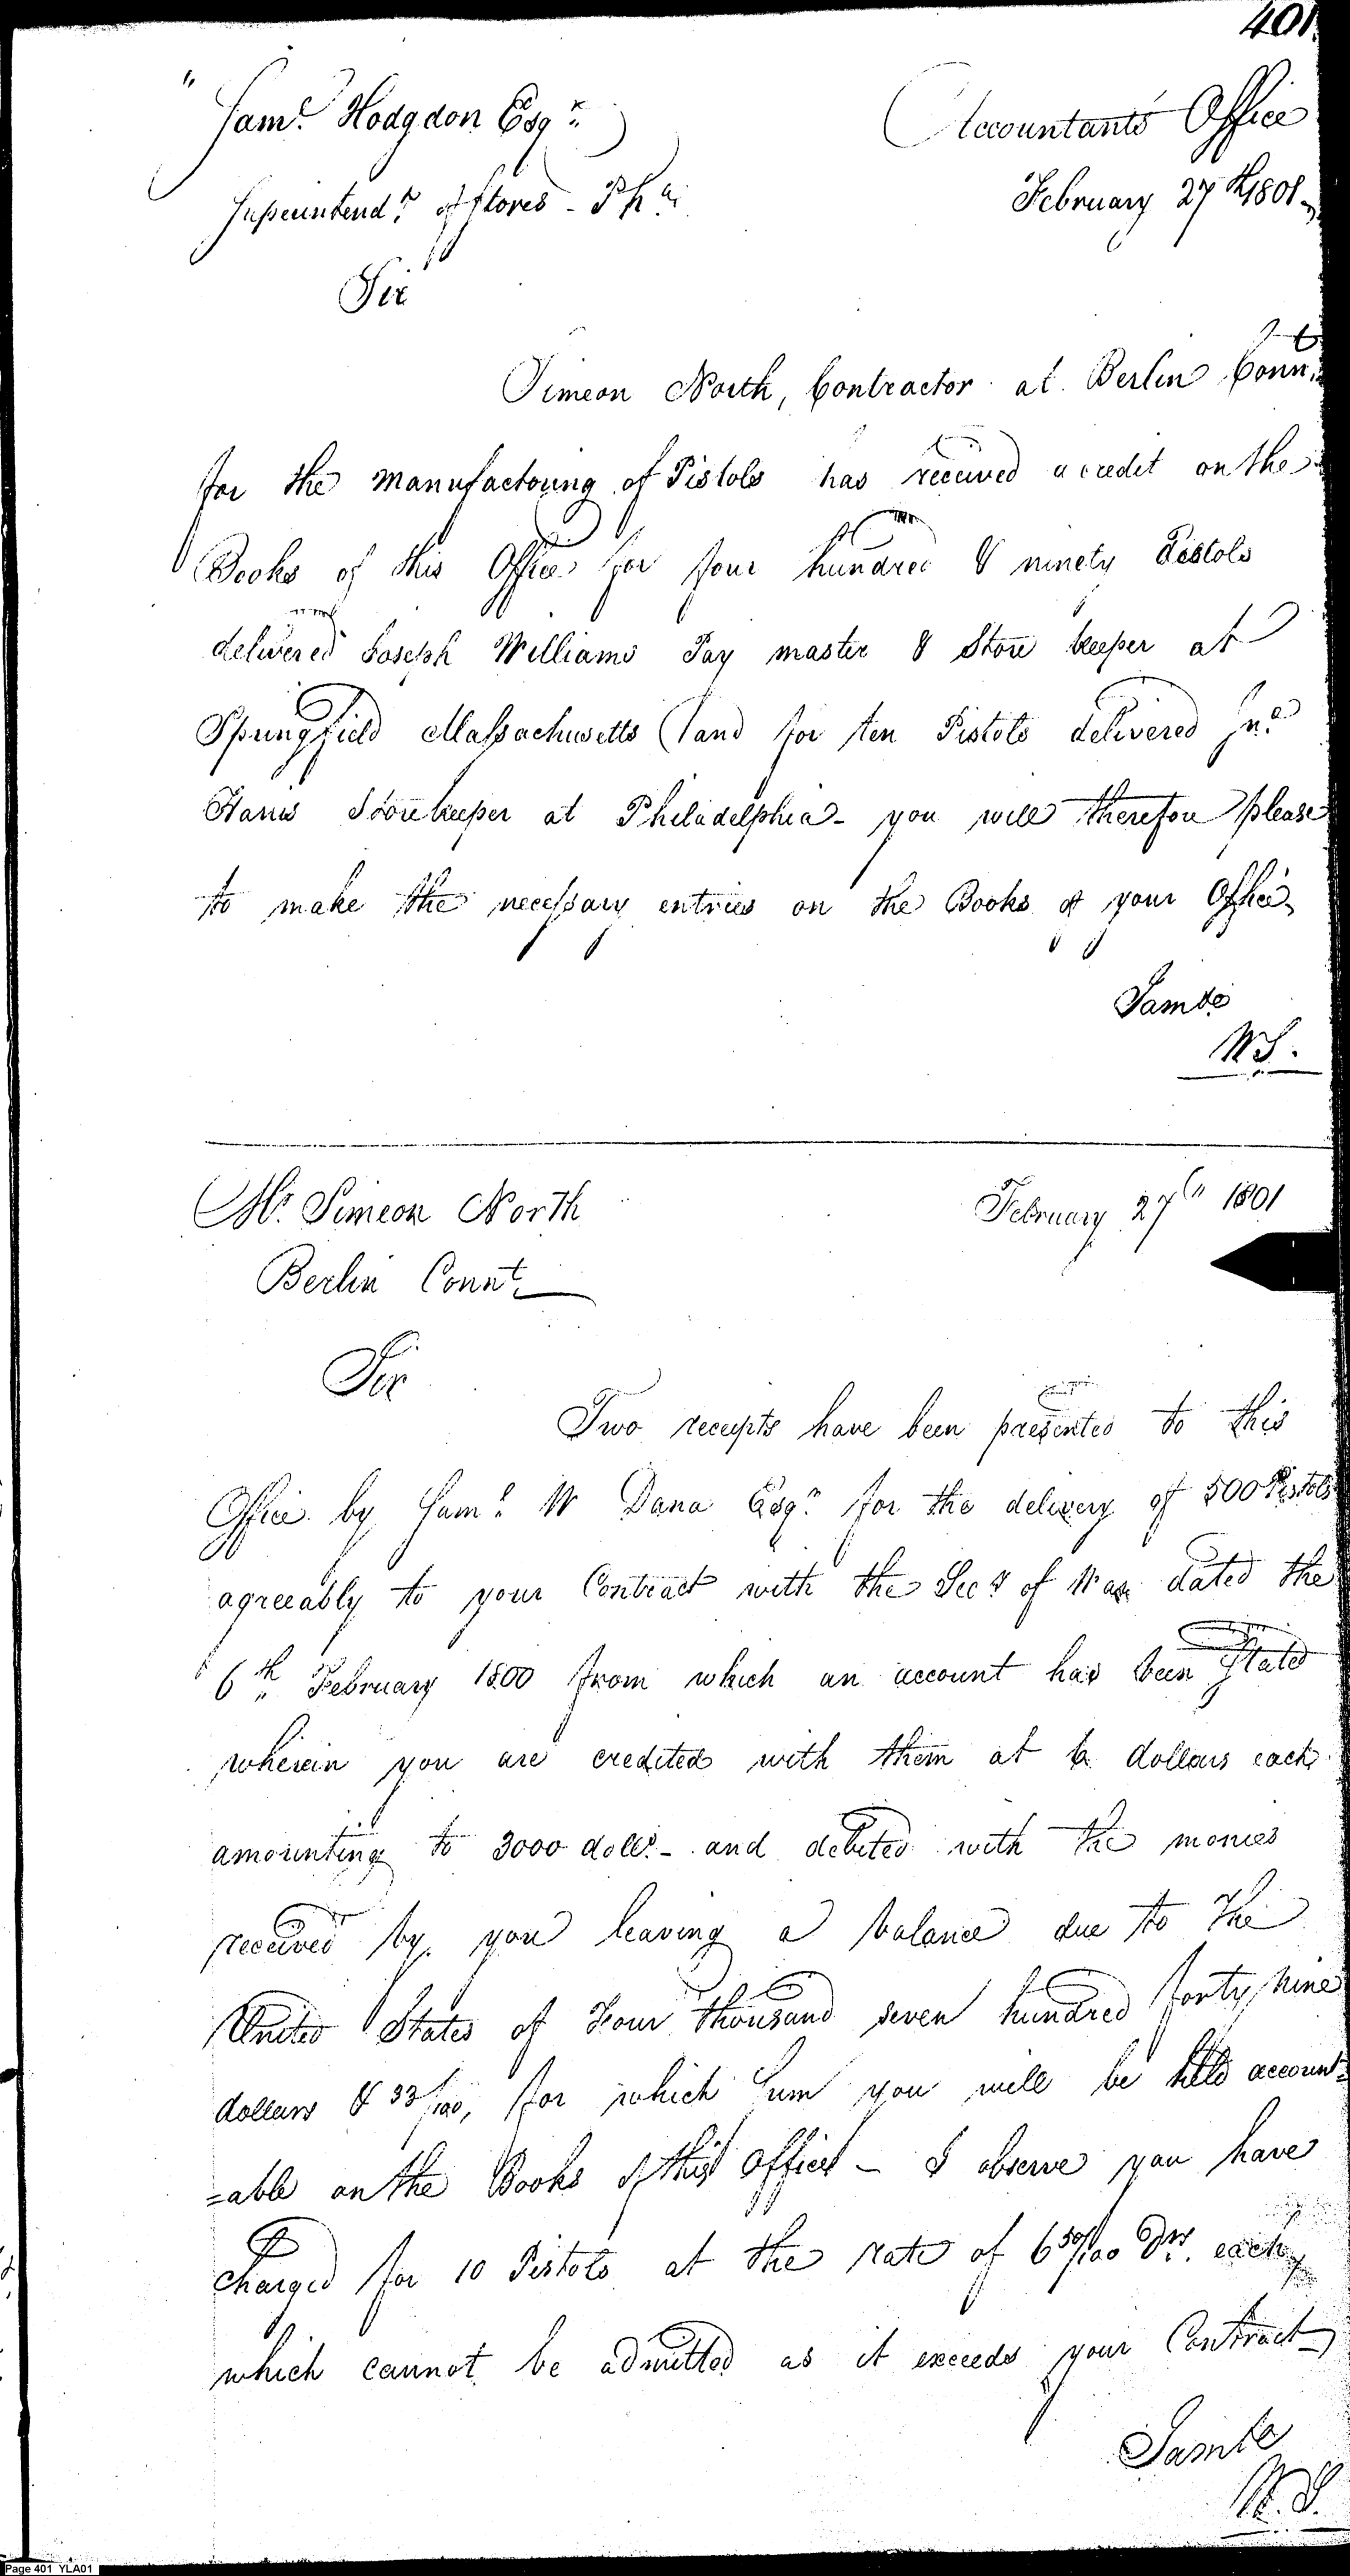 401.
Saml. Hodgdon Esqr.
Accountants Office
Superintendt. of Stores - Pha.
February 27th 1801 -
Sir
Simeon North, Contractor at Berlin Connt.
for the manufactoring of Pistols has received a credit on the
Books of this Office for four hundred & ninety Pistols
delivered Joseph Williams Pay master & Store keeper at
Springfield Massachusetts and for ten Pistols delivered Jno.
Harris Storekeeper at Philadelphia - you will therefore please
to make the necessary entries on the Books of your Office
I am &c
W S.
Mr. Simeon North
February 27th 1801
Berlin Connt.
Sir
Two receipts have been presented to this
Office by Saml. W Dana Esqr. for the delivery of 500 Pistols
agreeably to your Contract with the Secy of War dated the
6th February 1800 from which an account has been Stated
wherein you are credited with them at 6 dollars each
amounting to 3000 dolls. - and debited with the monies
received by you leaving a balance due to the
United States of Four thousand seven hundred forty nine
dollars & 33/100, for which Sum you will be held account=
=able on the Books of this Office - I observe you have
charged for 10 Pistols at the rate of 6 50/100 Drs. each
which cannot be admitted as it exceeds your Contract
I am &c
W. S.
Page 401 YLA01